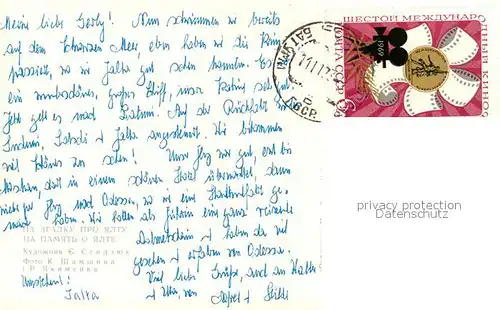 Meine liebe Gerly! Nun schwimmen wir bereits
auf dem Schwarzen Meer, eben haben wir die Krim
passiert, wo wir in Jalta gut sehen konnten. Es ist
ein wunderschönes, großes Schiff, unser
geht es nach Batumi. Auf der Rückfahrt ist
Suchumi, Sotschi + Jalta angesteuert. Wir bekommen
viel Schönes zu sehen! Unser Flug war gut, erst bis
Moskau, dort in einem schönen Hotel übernachtet, dann
Flug nach Odessa, wo wir eine Stadtrundfahrt ge-
macht haben. Wir hatten als Führerin eine ganz reizende
Dolmetscherin + haben da viel
gesehen + erfahren von Odessa.
Viel liebe Grüße, auch an Walter
+ Uta, von
Umstehend:
Jalta
НА ЗГАДКУ ПРО ЯЛТУ
НА ПАМЯТЬ О ЯЛТЕ
Художник Е.
Фото К. Шамшина
і Р. Якименка
ШЕСТОЙ МЕЖДУНАРОДНЫЙ КИНОФ
ПОЧТА СССР
1969
6
privacy protection
Datenschutz